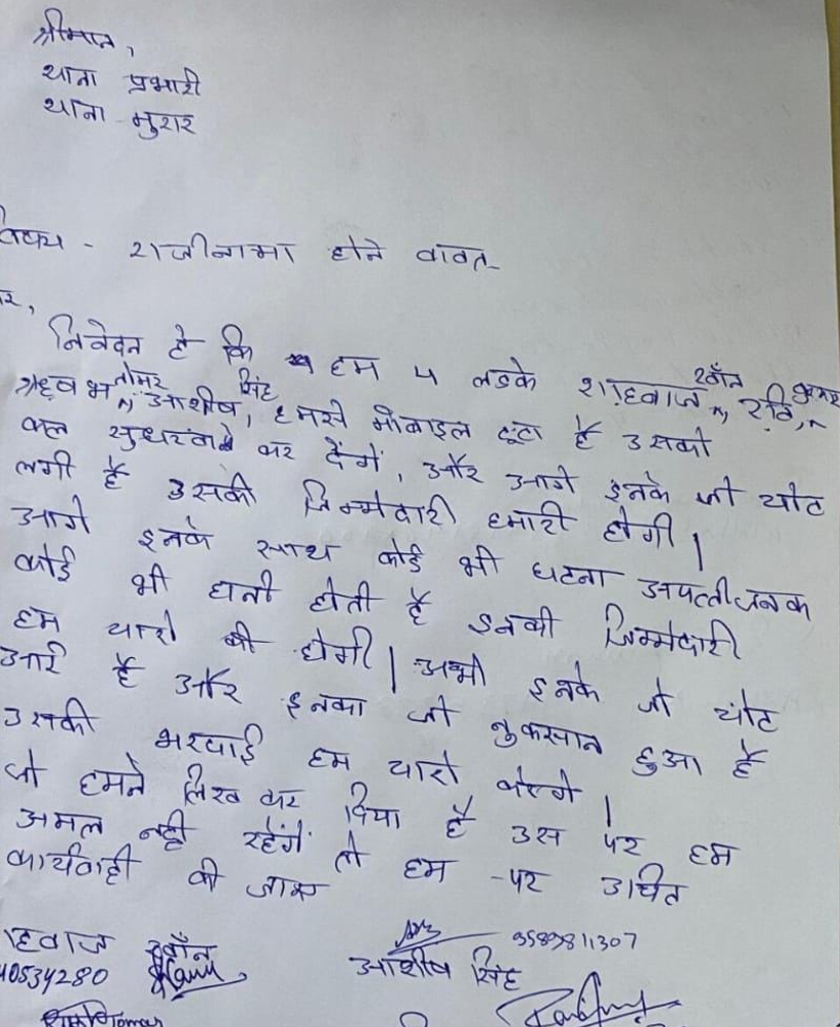 श्रीमान,
थाना प्रभारी
थाना मुरार
विषय - राजीनामा होने वावत
निवेदन है कि हम 4 लडके शाहवाज खाँन, रवि,
भ तोमर, आशीष सिंह, हमसे मोबाइल टूटा है उसको
कल सुधरवाके कर देंगें, और आगे इनके जो चोट
लगी है उसकी जिम्मेदारी हमारी होगी |
आगे इनके साथ कोई भी घटना अपत्तीजनक
कोई भी घती होती है इनकी जिम्मेदारी
हम चारो की होगी | अभी इनके जो चोट
आई है और इनका जो नुकसान हुआ है
उसकी भरवाई हम चारो करेगे |
जो हमने लिख कर दिया है उस पर हम
अमल नही रहेंगें तो हम पर उचित
कार्यवाही की जाए
हवाज खाँन 9589811307
40534280 आशीष सिंह
Tomar